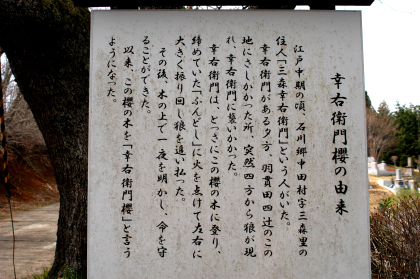 幸右衛門櫻の由来
江戸中期の頃、石川郷中田村字三森里の
住人「三森幸右衛門」という人がいた。
幸右衛門がある夕方、羽貫田四辻のこの
地にさしかかった所、突然四方から狼が現
れ、幸右衛門に襲いかかった。
幸右衛門は、とっさにこの櫻の木に登り、
締めていた「ふんどし」に火を点けて左右に
大きく振り回し狼を追い払った。
その後、木の上で一夜を明かし、命を守
ることができた。
以来、この櫻の木を「幸右衛門櫻」と言う
ようになった。